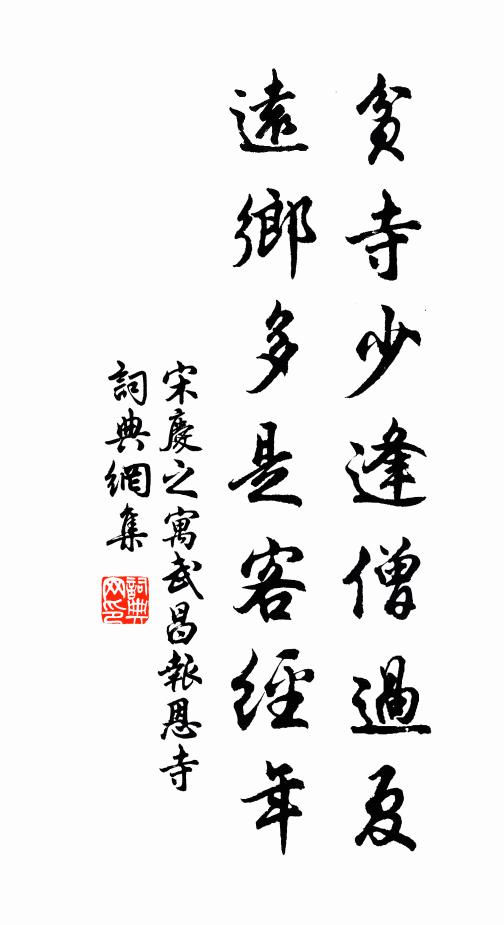 貧寺少逢僧過夏
遠鄉多是客經年
宋慶之寓武昌報恩寺
詞典網集
詞典網印